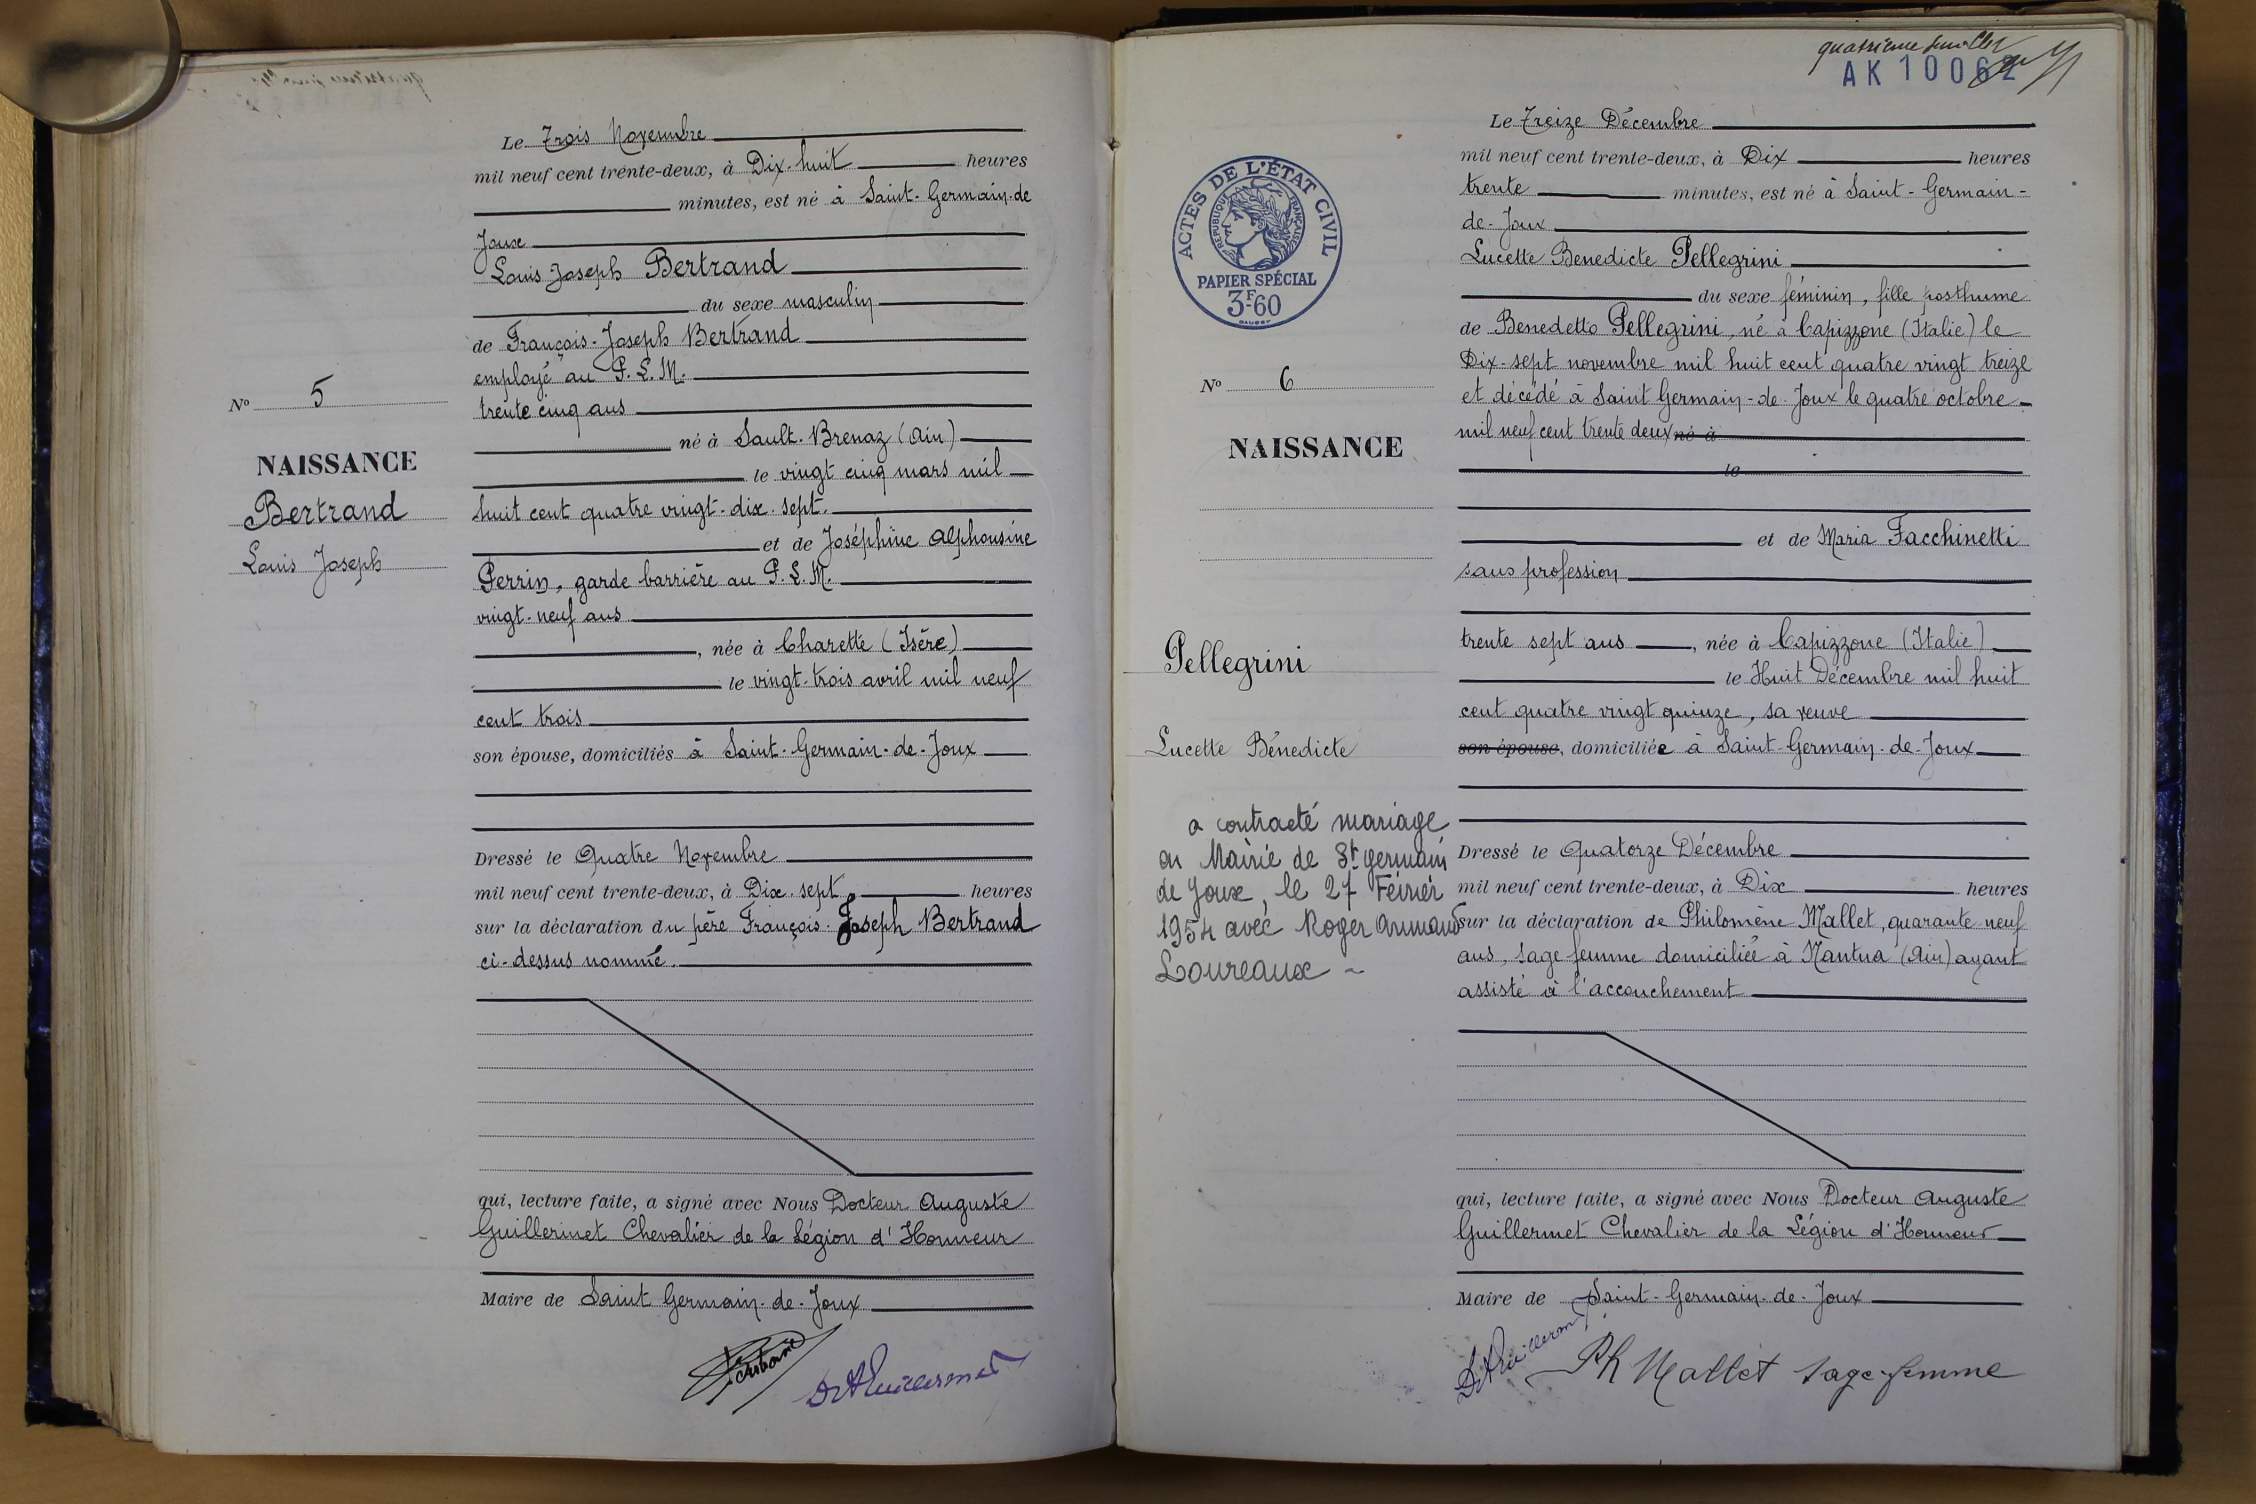 Le Trois Novembre
mil neuf cent trente-deux, à Dix-huit heures
minutes, est né à Saint-Germain-de
Joux
Louis Joseph Bertrand
du sexe masculin
de François-Joseph Bertrand
employé au P. L. M.
trente cinq ans
né à Sault-Brenaz (Ain)
le vingt cinq mars mil
huit cent quatre vingt-dix-sept.
et de Joséphine Alphonsine
Perrin, garde barrière au P. L. M.
vingt-neuf ans
, née à Charette (Isère)
le vingt-trois avril mil neuf
cent trois
son épouse, domiciliés à Saint-Germain-de-Joux
Dressé le Quatre Novembre
mil neuf cent trente-deux, à Dix-sept heures
sur la déclaration du père François-Joseph Bertrand
ci-dessus nommé.
qui, lecture faite, a signé avec Nous Docteur Auguste
Guillermet Chevalier de la Légion d'Honneur
Maire de Saint Germain-de-Joux
Dr A Guillermet
No 5
NAISSANCE
Bertrand
Louis Joseph
quatrième feuillet
AK 10062
ACTES DE L'ÉTAT CIVIL
RÉPUBLIQUE FRANÇAISE
PAPIER SPÉCIAL
3F-60
No 6
NAISSANCE
Pellegrini
Lucette Bénedicte
a contracté mariage
en Mairie de St germain
de Joux, le 27 Février
1954 avec Roger Armand
Loureaux
Le Treize Décembre
mil neuf cent trente-deux, à Dix heures
trente minutes, est né à Saint-Germain-
de-Joux
Lucette Benedicte Pellegrini
du sexe féminin, fille posthume
de Benedetto Pellegrini, né à Capizzone (Italie) le
Dix-sept novembre mil huit cent quatre vingt treize
et décédé à Saint Germain-de-Joux le quatre octobre
mil neuf cent trente deux né à
le
et de Maria Facchinetti
sans profession
trente sept ans, née à Capizzone (Italie)
le Huit Décembre mil huit
cent quatre vingt quinze, sa veuve
son épouse, domiciliée à Saint-Germain-de-Joux
Dressé le Quatorze Décembre
mil neuf cent trente-deux, à Dix heures
sur la déclaration de Philomène Mallet, quarante neuf
ans, sage femme domiciliée à Nantua (Ain) ayant
assisté à l'accouchement
qui, lecture faite, a signé avec Nous Docteur Auguste
Guillermet Chevalier de la Légion d'Honneur
Maire de Saint-Germain-de-Joux
Dr A Guillermet
Ph Mallet sage-femme